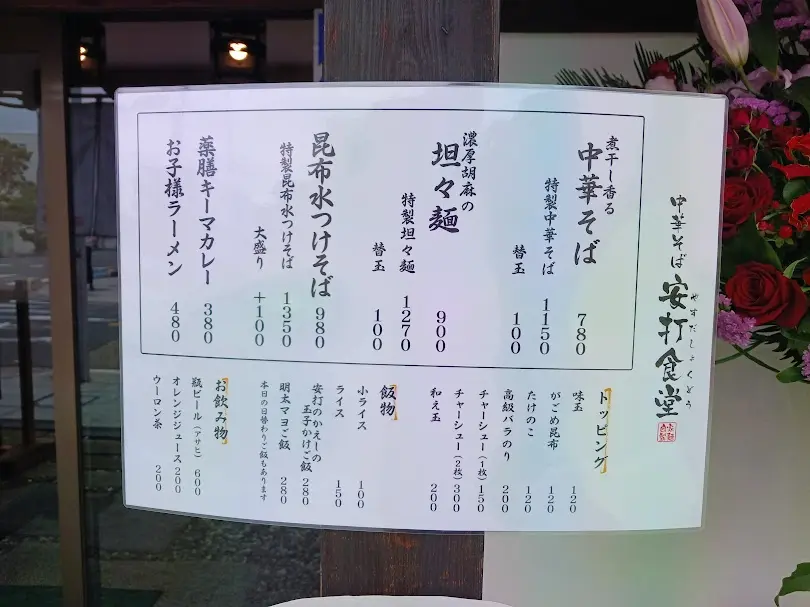 中華そば
安打食堂
やすだしょくどう
煮干し香る
中華そば 780
特製中華そば 1150
替玉 100
濃厚胡麻の
坦々麺 900
特製坦々麺 1270
替玉 100
昆布水つけそば 980
特製昆布水つけそば 1350
大盛り +100
薬膳キーマカレー 380
お子様ラーメン 480
トッピング
味玉 120
がごめ昆布 120
たけのこ 120
高級バラのり 200
チャーシュー(1枚) 150
チャーシュー(2枚) 300
和え玉 200
飯物
小ライス 100
ライス 150
安打のかえしの
玉子かけご飯 280
明太マヨご飯 280
本日の日替わりご飯もあります
お飲み物
瓶ビール(アサヒ) 600
オレンジジュース 200
ウーロン茶 200